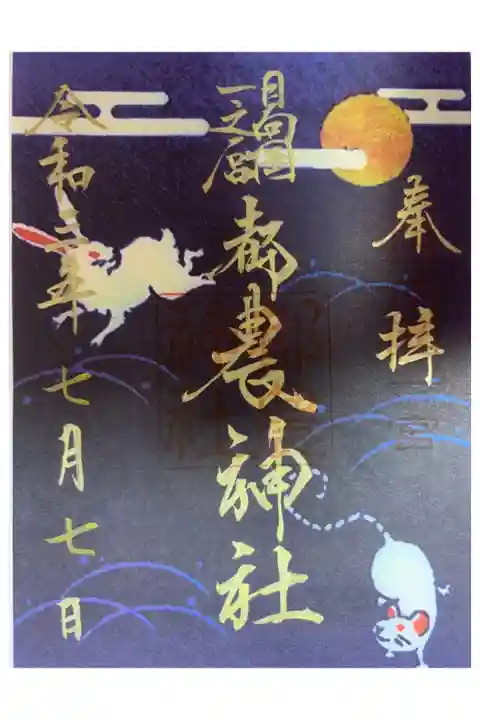 奉拝
日向国
一之宮
都農神社
令和三年七月七日